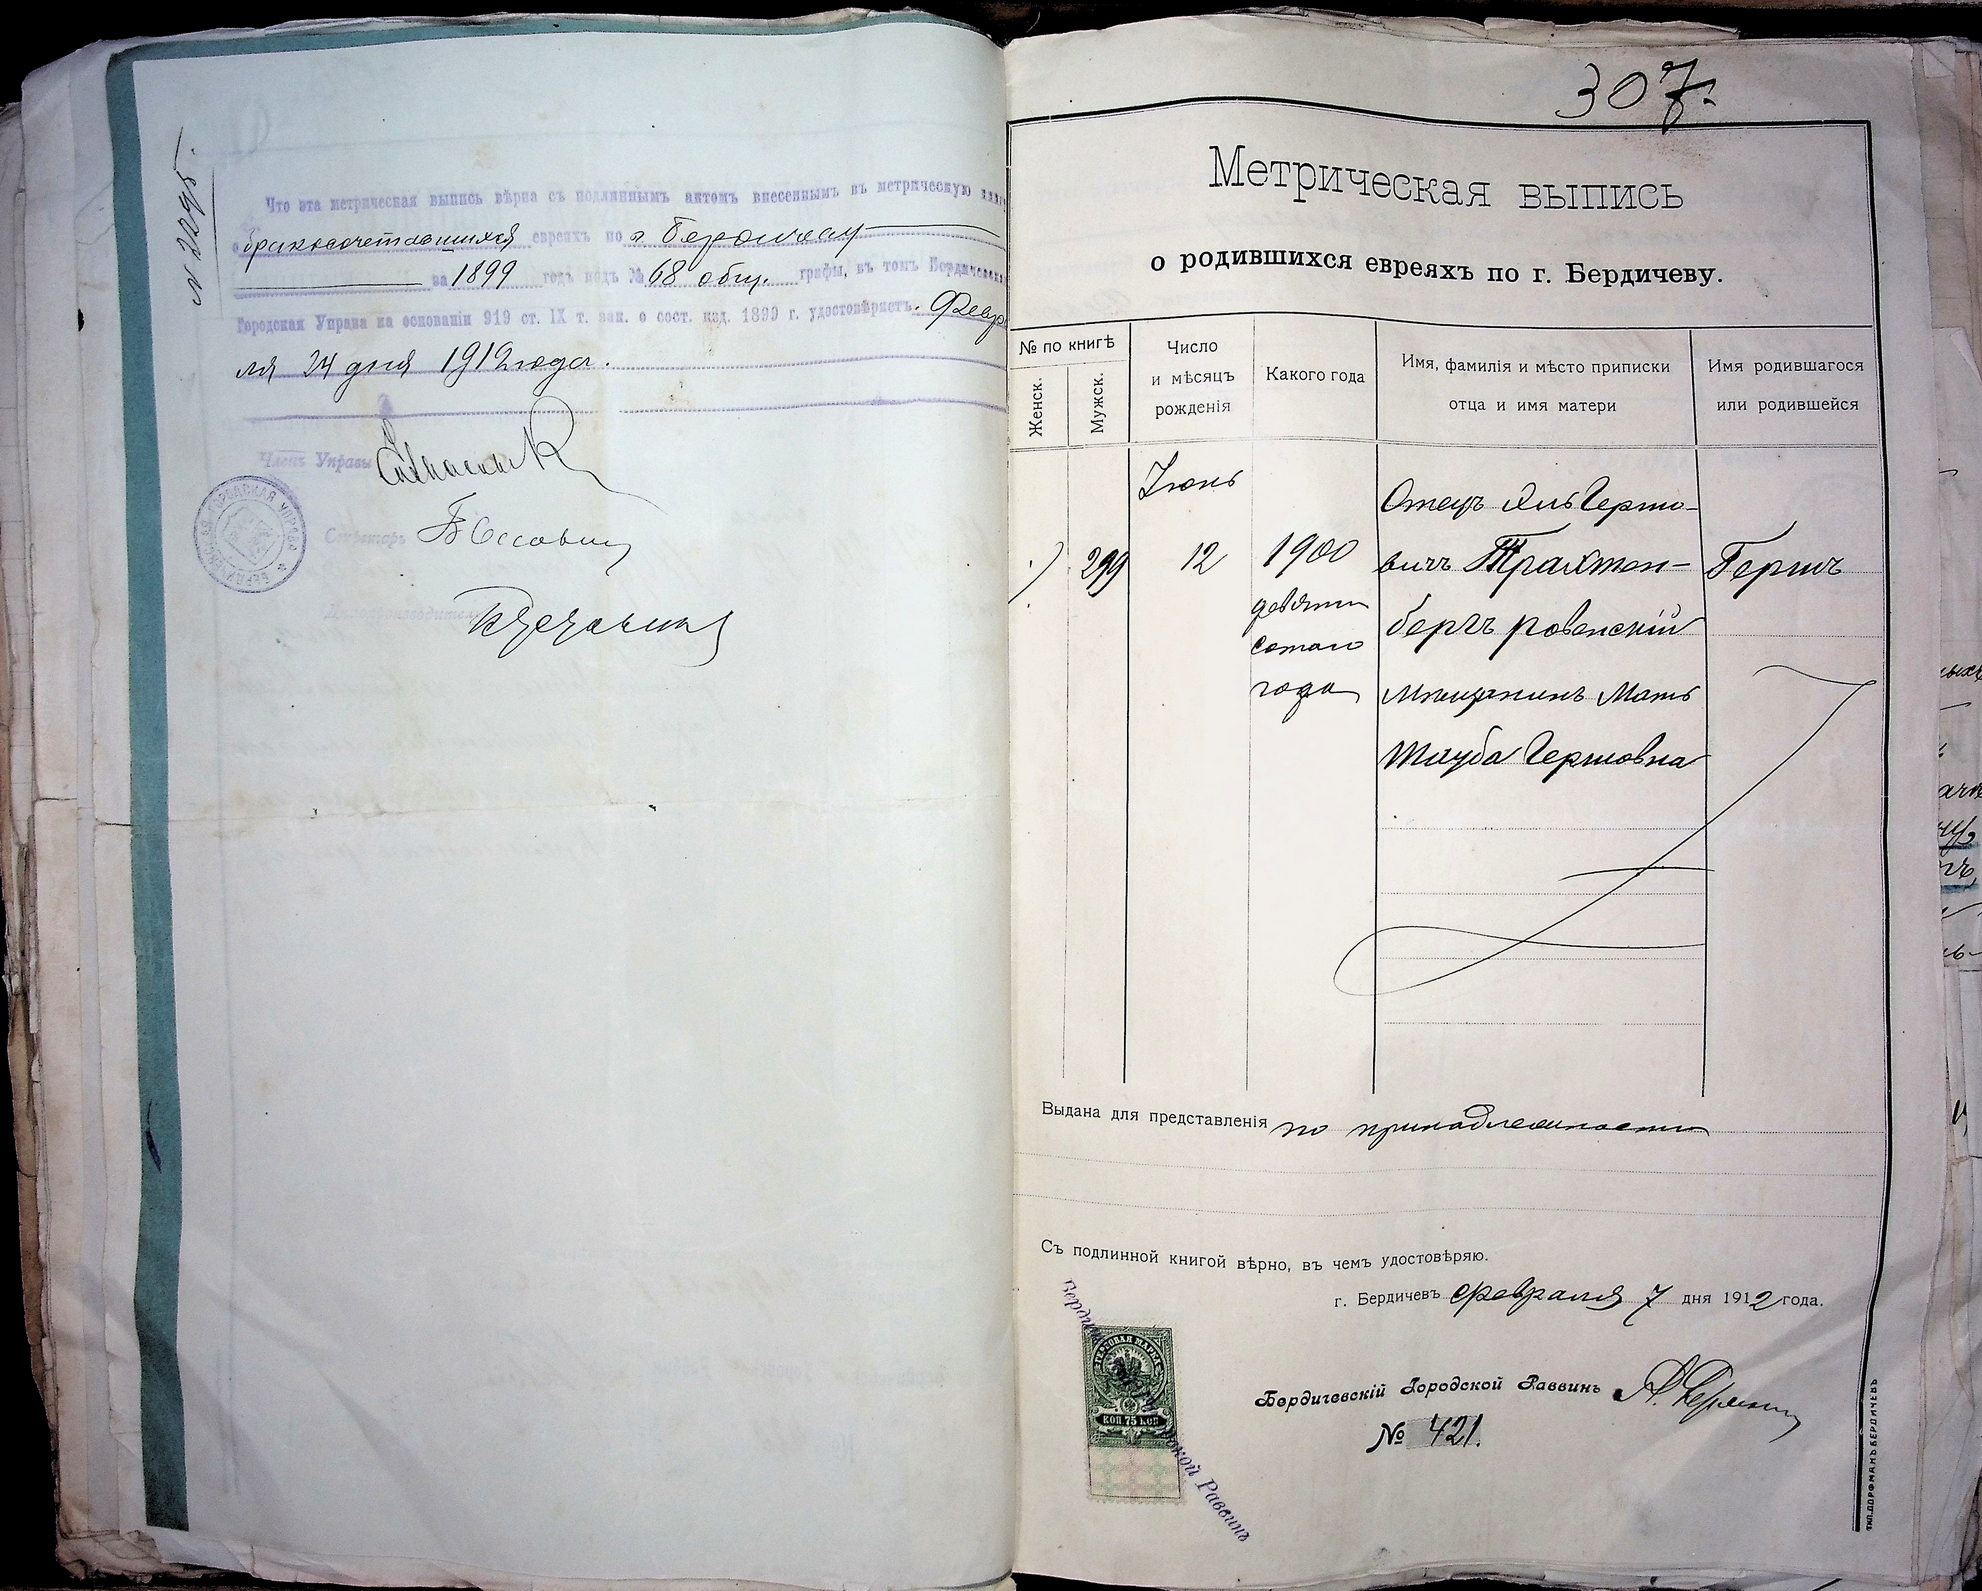 N 2295.
Что эта метрическая выпись вѣрна съ подлиннымъ актомъ внесеннымъ въ метрическую
о бракосочетавшихся евреяхъ по г. Бердичеву
за 1899 годъ подъ № 68 общ. графы, въ томъ
Городская Управа на основаніи 919 ст. IX т. зак. о сост. изд. 1899 г. удостовѣряетъ. Февра
ля 24 дня 1912 года.
Членъ Управы
Секретарь
Дѣлопроизводитель
307.
Метрическая выпись
о родившихся евреяхъ по г. Бердичеву.
№ по книгѣ
Женск.
Мужск.
Число и мѣсяцъ рожденія
Какого года
Имя, фамилія и мѣсто приписки отца и имя матери
Имя родившагося или родившейся
299
Іюнь
12
1900
девяти
сотаго
года
Отецъ Гершо-
вичъ Трахтен-
бергъ ровенскій
мѣщанинъ Мать
Тауба Гершовна
Гершъ
Выдана для представленія по принадлежности
Съ подлинной книгой вѣрно, въ чемъ удостовѣряю.
г. Бердичевъ февраля 7 дня 1912 года.
КОП. 75 КОП
Бердичевскій Городской Раввинъ
№ 421.
ТИП. ДОРФМАНЪ БЕРДИЧЕВЪ